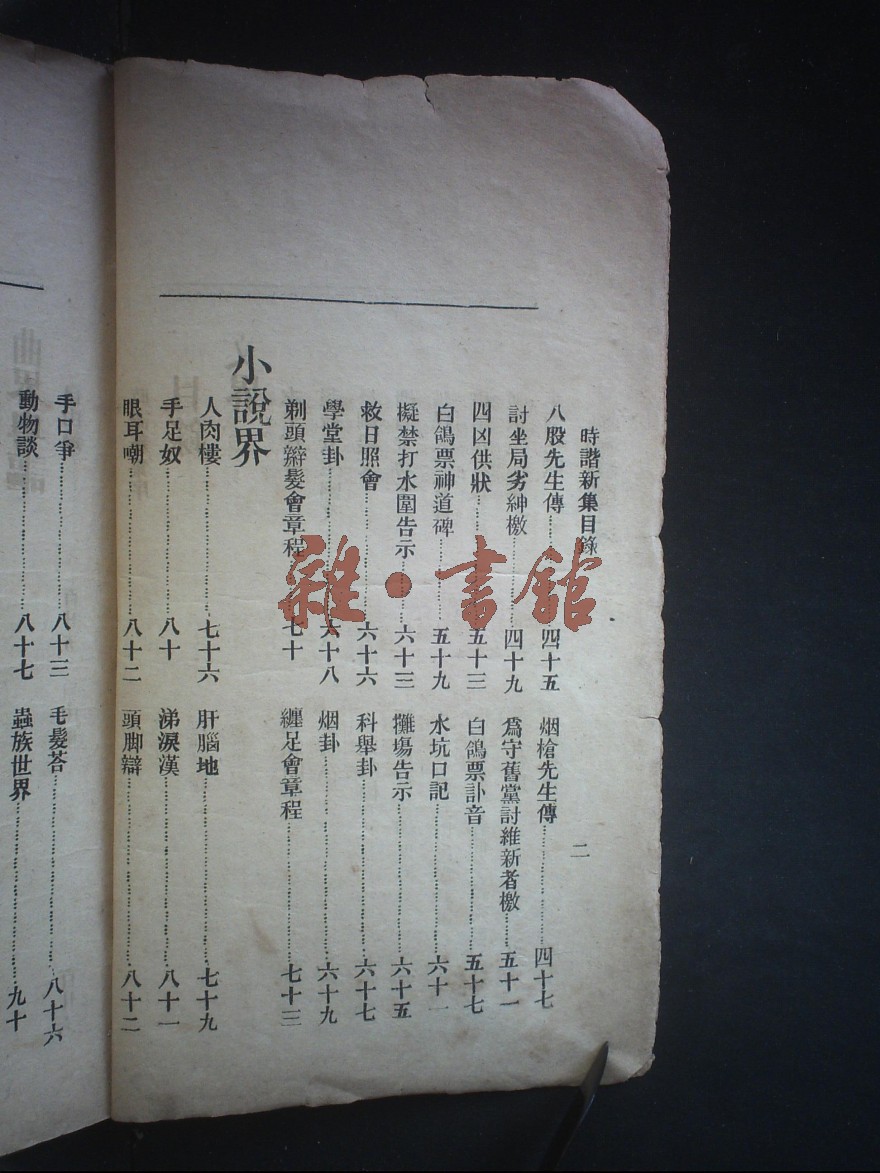 時諧新集目錄 二
八股先生傳 四十五 烟槍先生傳 四十七
討坐局劣紳檄 四十九 爲守舊黨討維新者檄 五十一
四凶供狀 五十三 白鴿票訃音 五十七
白鴿票神道碑 五十九 水坑口記 六十一
擬禁打水圍告示 六十三 攤塲告示 六十五
救日照會 六十六 科舉卦 六十七
學堂卦 六十八 烟卦 六十九
剃頭辮髮會章程 七十 纏足會章程 七十三
小說界
人肉樓 七十六 肝腦地 七十九
手足奴 八十 涕淚漢 八十一
眼耳嘲 八十二 頭脚辯 八十二
手口爭 八十三 毛髮荅 八十六
動物談 八十七 蟲族世界 九十
雜·書館